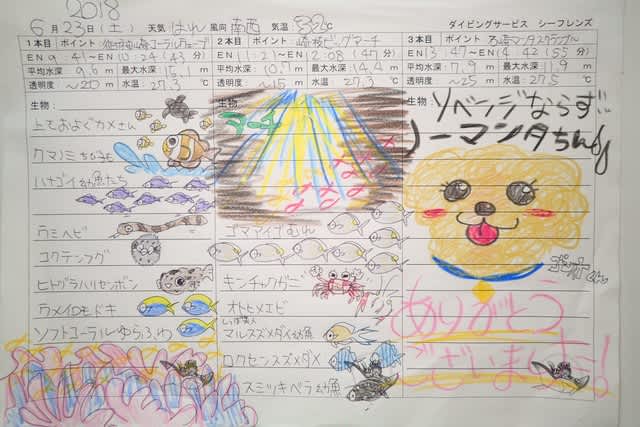 2018
6月23日(土) 天気 はれ 風向 南西 気温 32℃ ダイビングサービス シーフレンズ
1本目 ポイント
EN 9:41～ 10:24 (43分)
平均水深 9.6m 最大水深 15.1m
透明度 ～20m 水温 27.3℃
生物:
上でおよぐカメさん
クマノミ
ハナゴイ幼魚たち
ウミヘビ
コクテンフグ
ヒトヅラハリセンボン
ウメイロモドキ
ソフトコーラルゆらふわ
2本目 ポイント 崎枝ビッグアーチ
EN 11:21～ 12:08 (47分)
平均水深 10.1m 最大水深 14.4m
透明度 ～15m 水温 27.3℃
生物
ゴマアイゴむれ
キンチャクガニ
オトヒメエビ
マルスズメダイ幼魚
ロクセンスズメダイ
スミツキベラ幼魚
3本目 ポイント 石崎マンタスクランブル
EN 13:47～ 14:42 (55分)
平均水深 7.9m 最大水深 11.9m
透明度 ～25m 水温 27.5℃
生物:
リベンジならず‥
ノーマンタちん
ありがとう
ございました!